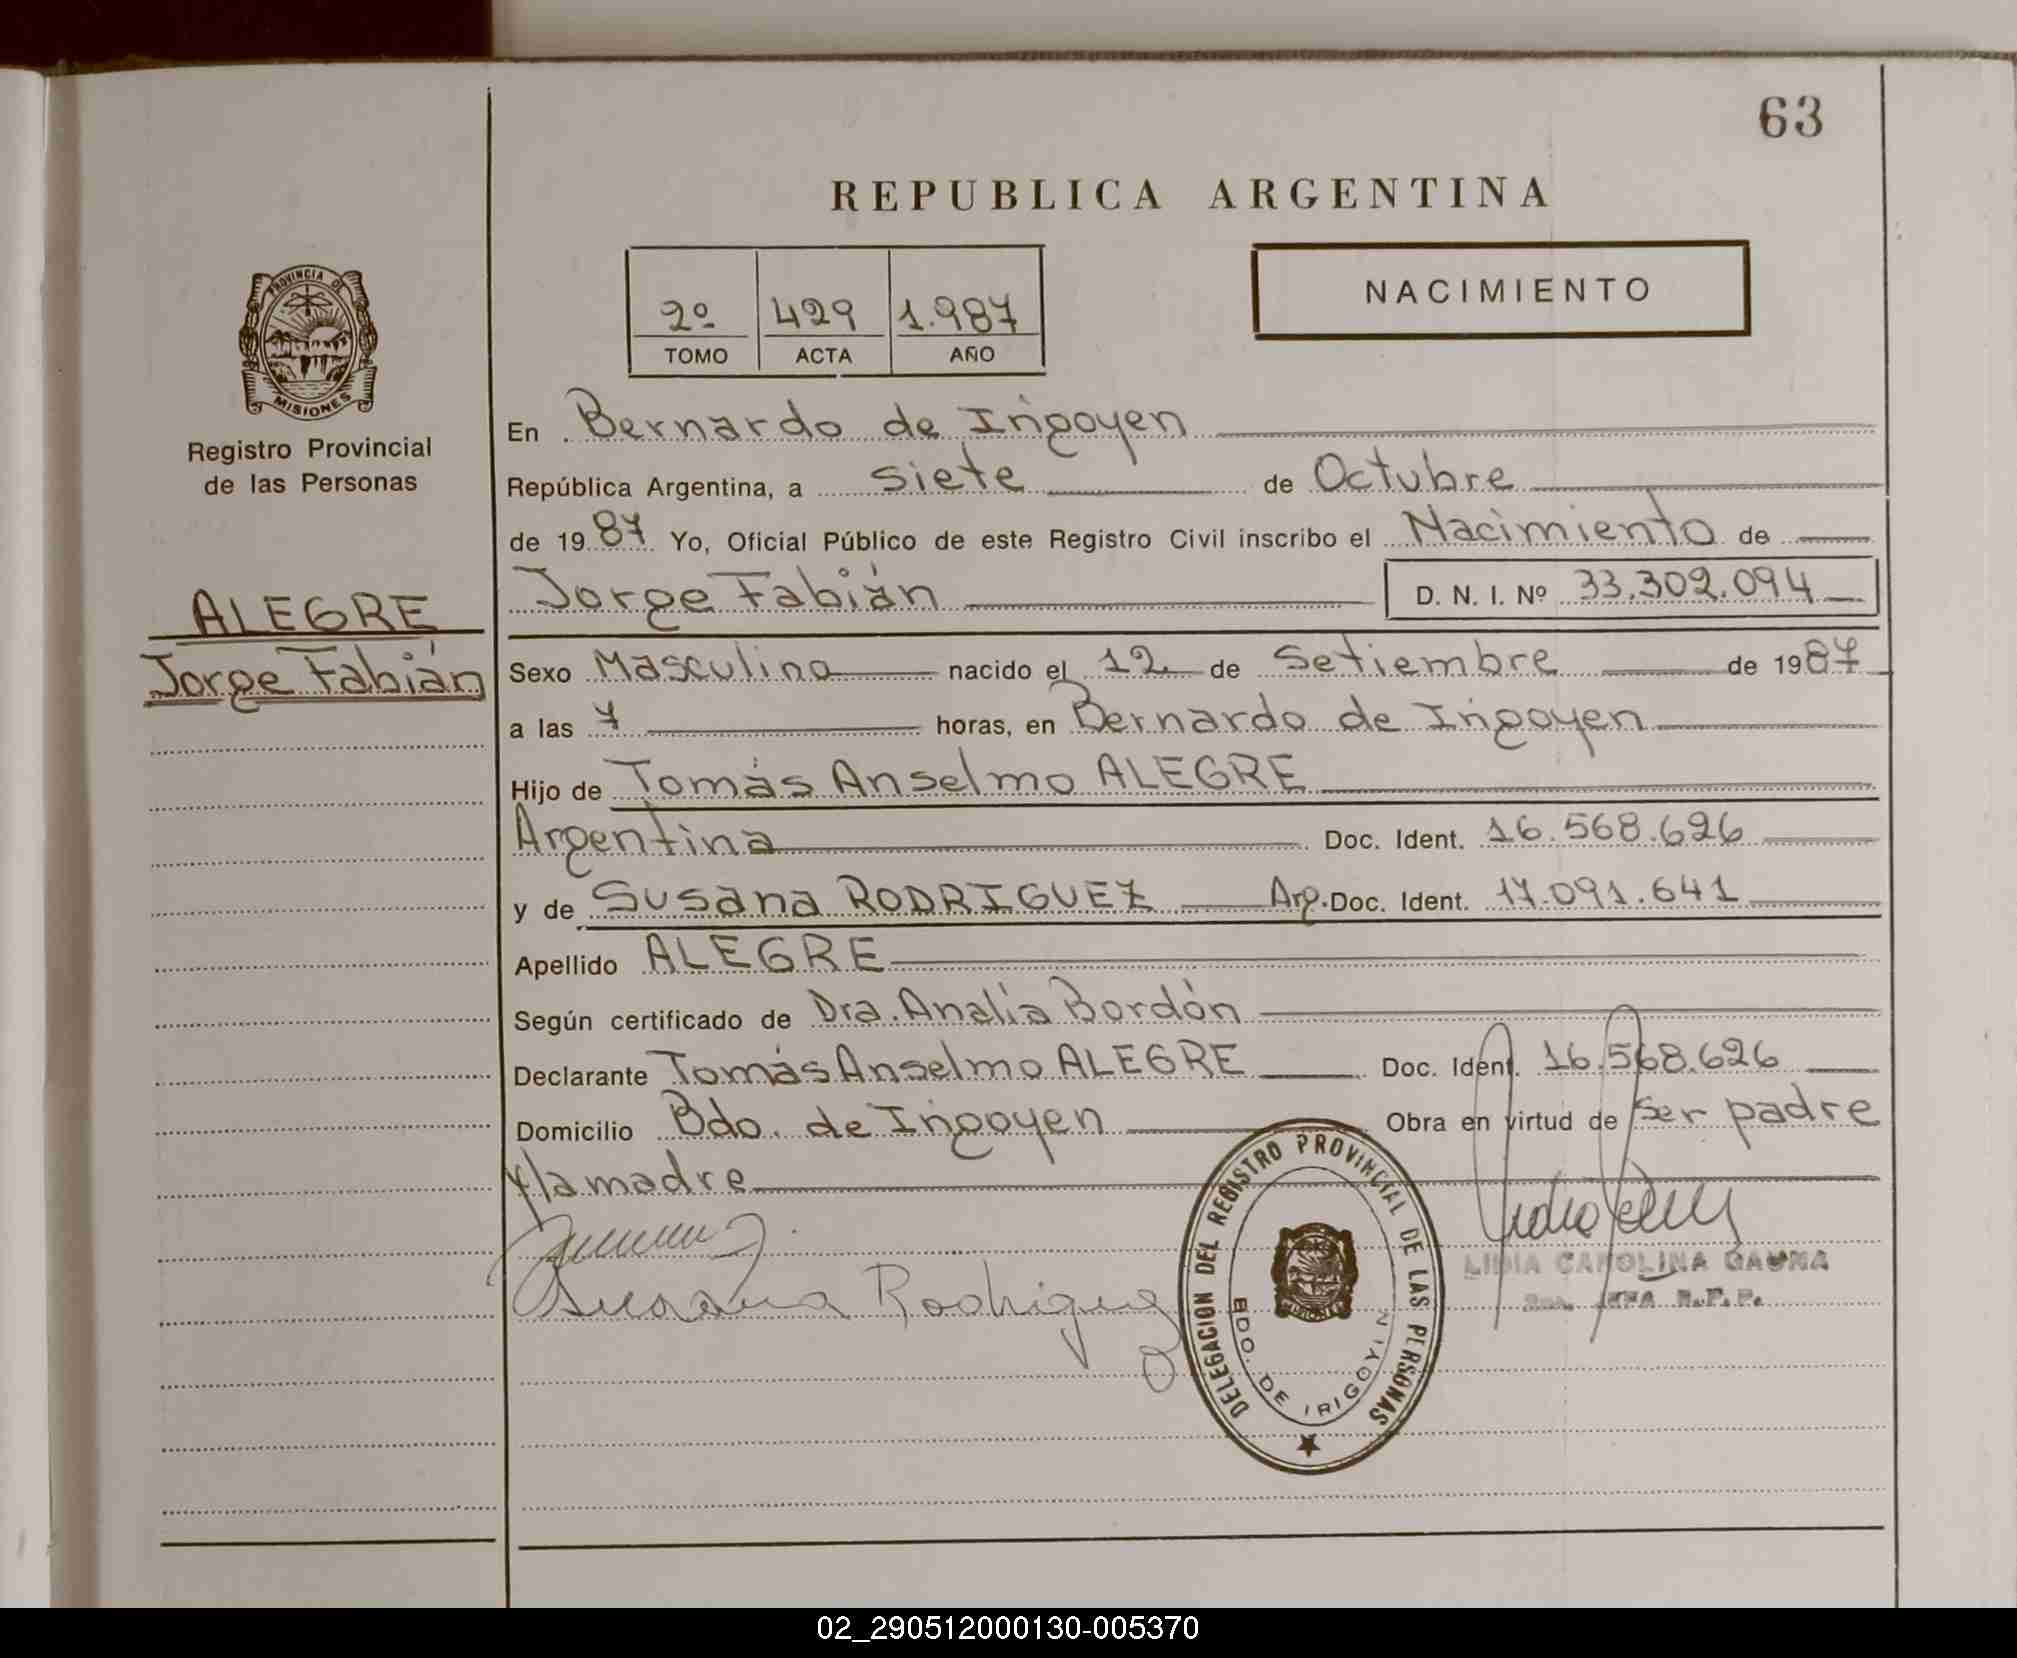 63
REPUBLICA ARGENTINA
2º 429 1.987
TOMO ACTA AÑO
NACIMIENTO
PROVINCIA DE
MISIONES
Registro Provincial
de las Personas
ALEGRE
Jorge Fabián
En Bernardo de Irigoyen
República Argentina, a siete de Octubre
de 1987 Yo, Oficial Público de este Registro Civil inscribo el Nacimiento de
Jorge Fabián D. N. I. Nº 33.302.094
Sexo Masculino nacido el 12 de Setiembre de 1987
a las 7 horas, en Bernardo de Irigoyen
Hijo de Tomás Anselmo ALEGRE
Argentina Doc. Ident. 16.568.626
y de Susana RODRIGUEZ Arg. Doc. Ident. 17.091.641
Apellido ALEGRE
Según certificado de Dra. Analía Bordón
Declarante Tomás Anselmo ALEGRE Doc. Ident. 16.568.626
Domicilio Bdo. de Irigoyen Obra en virtud de ser padre
y la madre
Susana Rodriguez
DELEGACION DEL REGISTRO PROVINCIAL DE LAS PERSONAS
BDO. DE IRIGOYIN
LIDIA CAROLINA GAUNA
JEFA R.P.P.
02_290512000130-005370